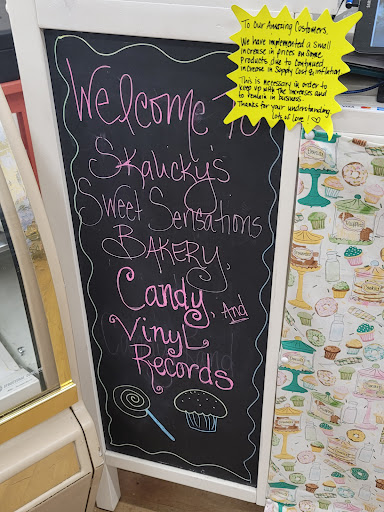 To Our Amazing Customers,
We have implemented a small
increase in prices on some
products due to continued
increase in supply cost & inflation
This is necessary in order to
keep up with the increases and
to remain in business.
Thanks for your understanding
Lots of Love!
Welcome To
Skalicky's
Sweet Sensations
Bakery,
Candy, And
Vinyl
Records